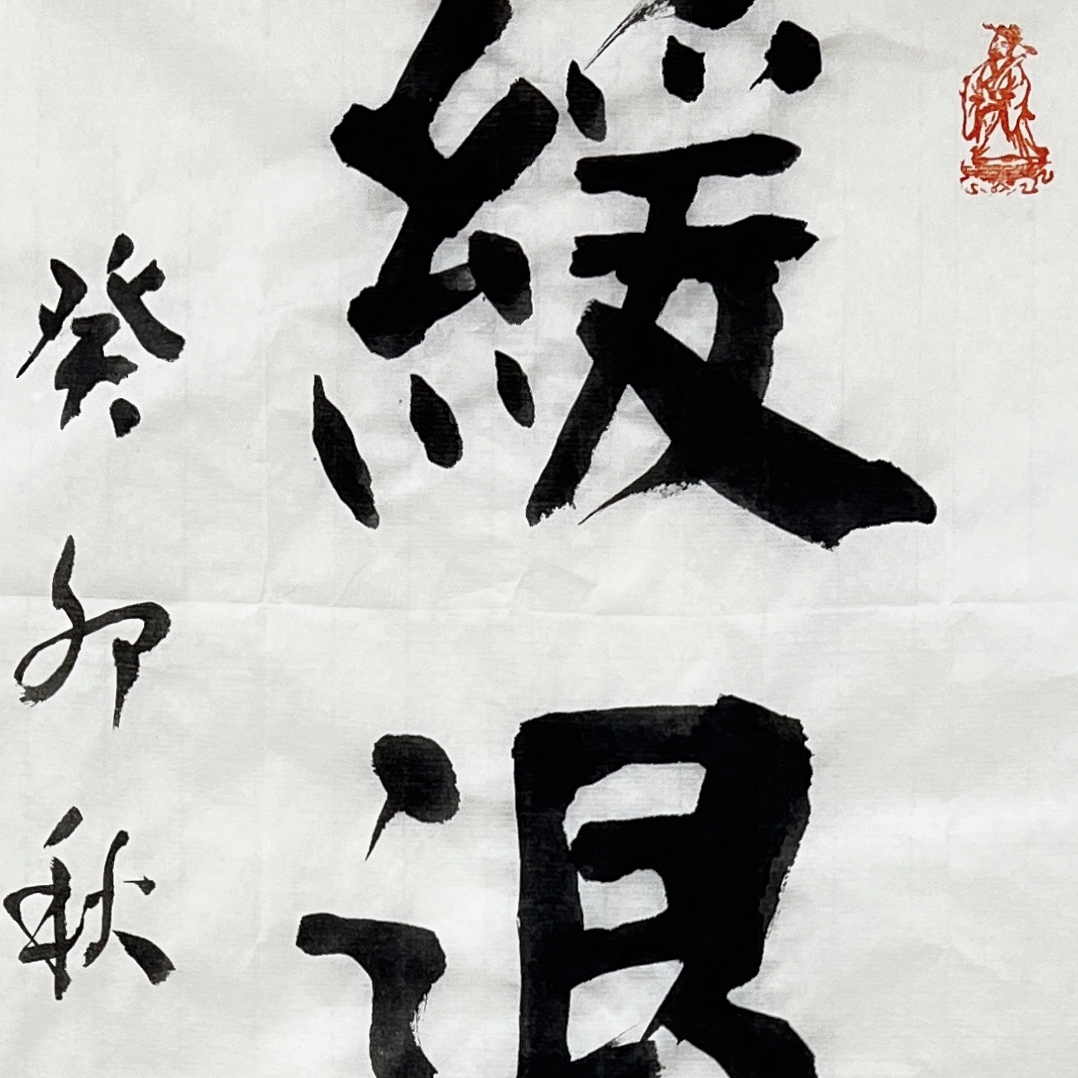 緩退
癸卯秋